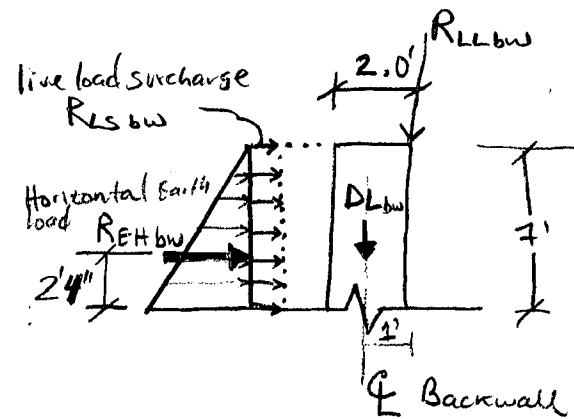 R_LLbw
2.0'
live load surcharge
R_LSbw
Horizontal Earth
load
DL_bw
R_EHbw
7'
2'4"
1'
℄ Backwall